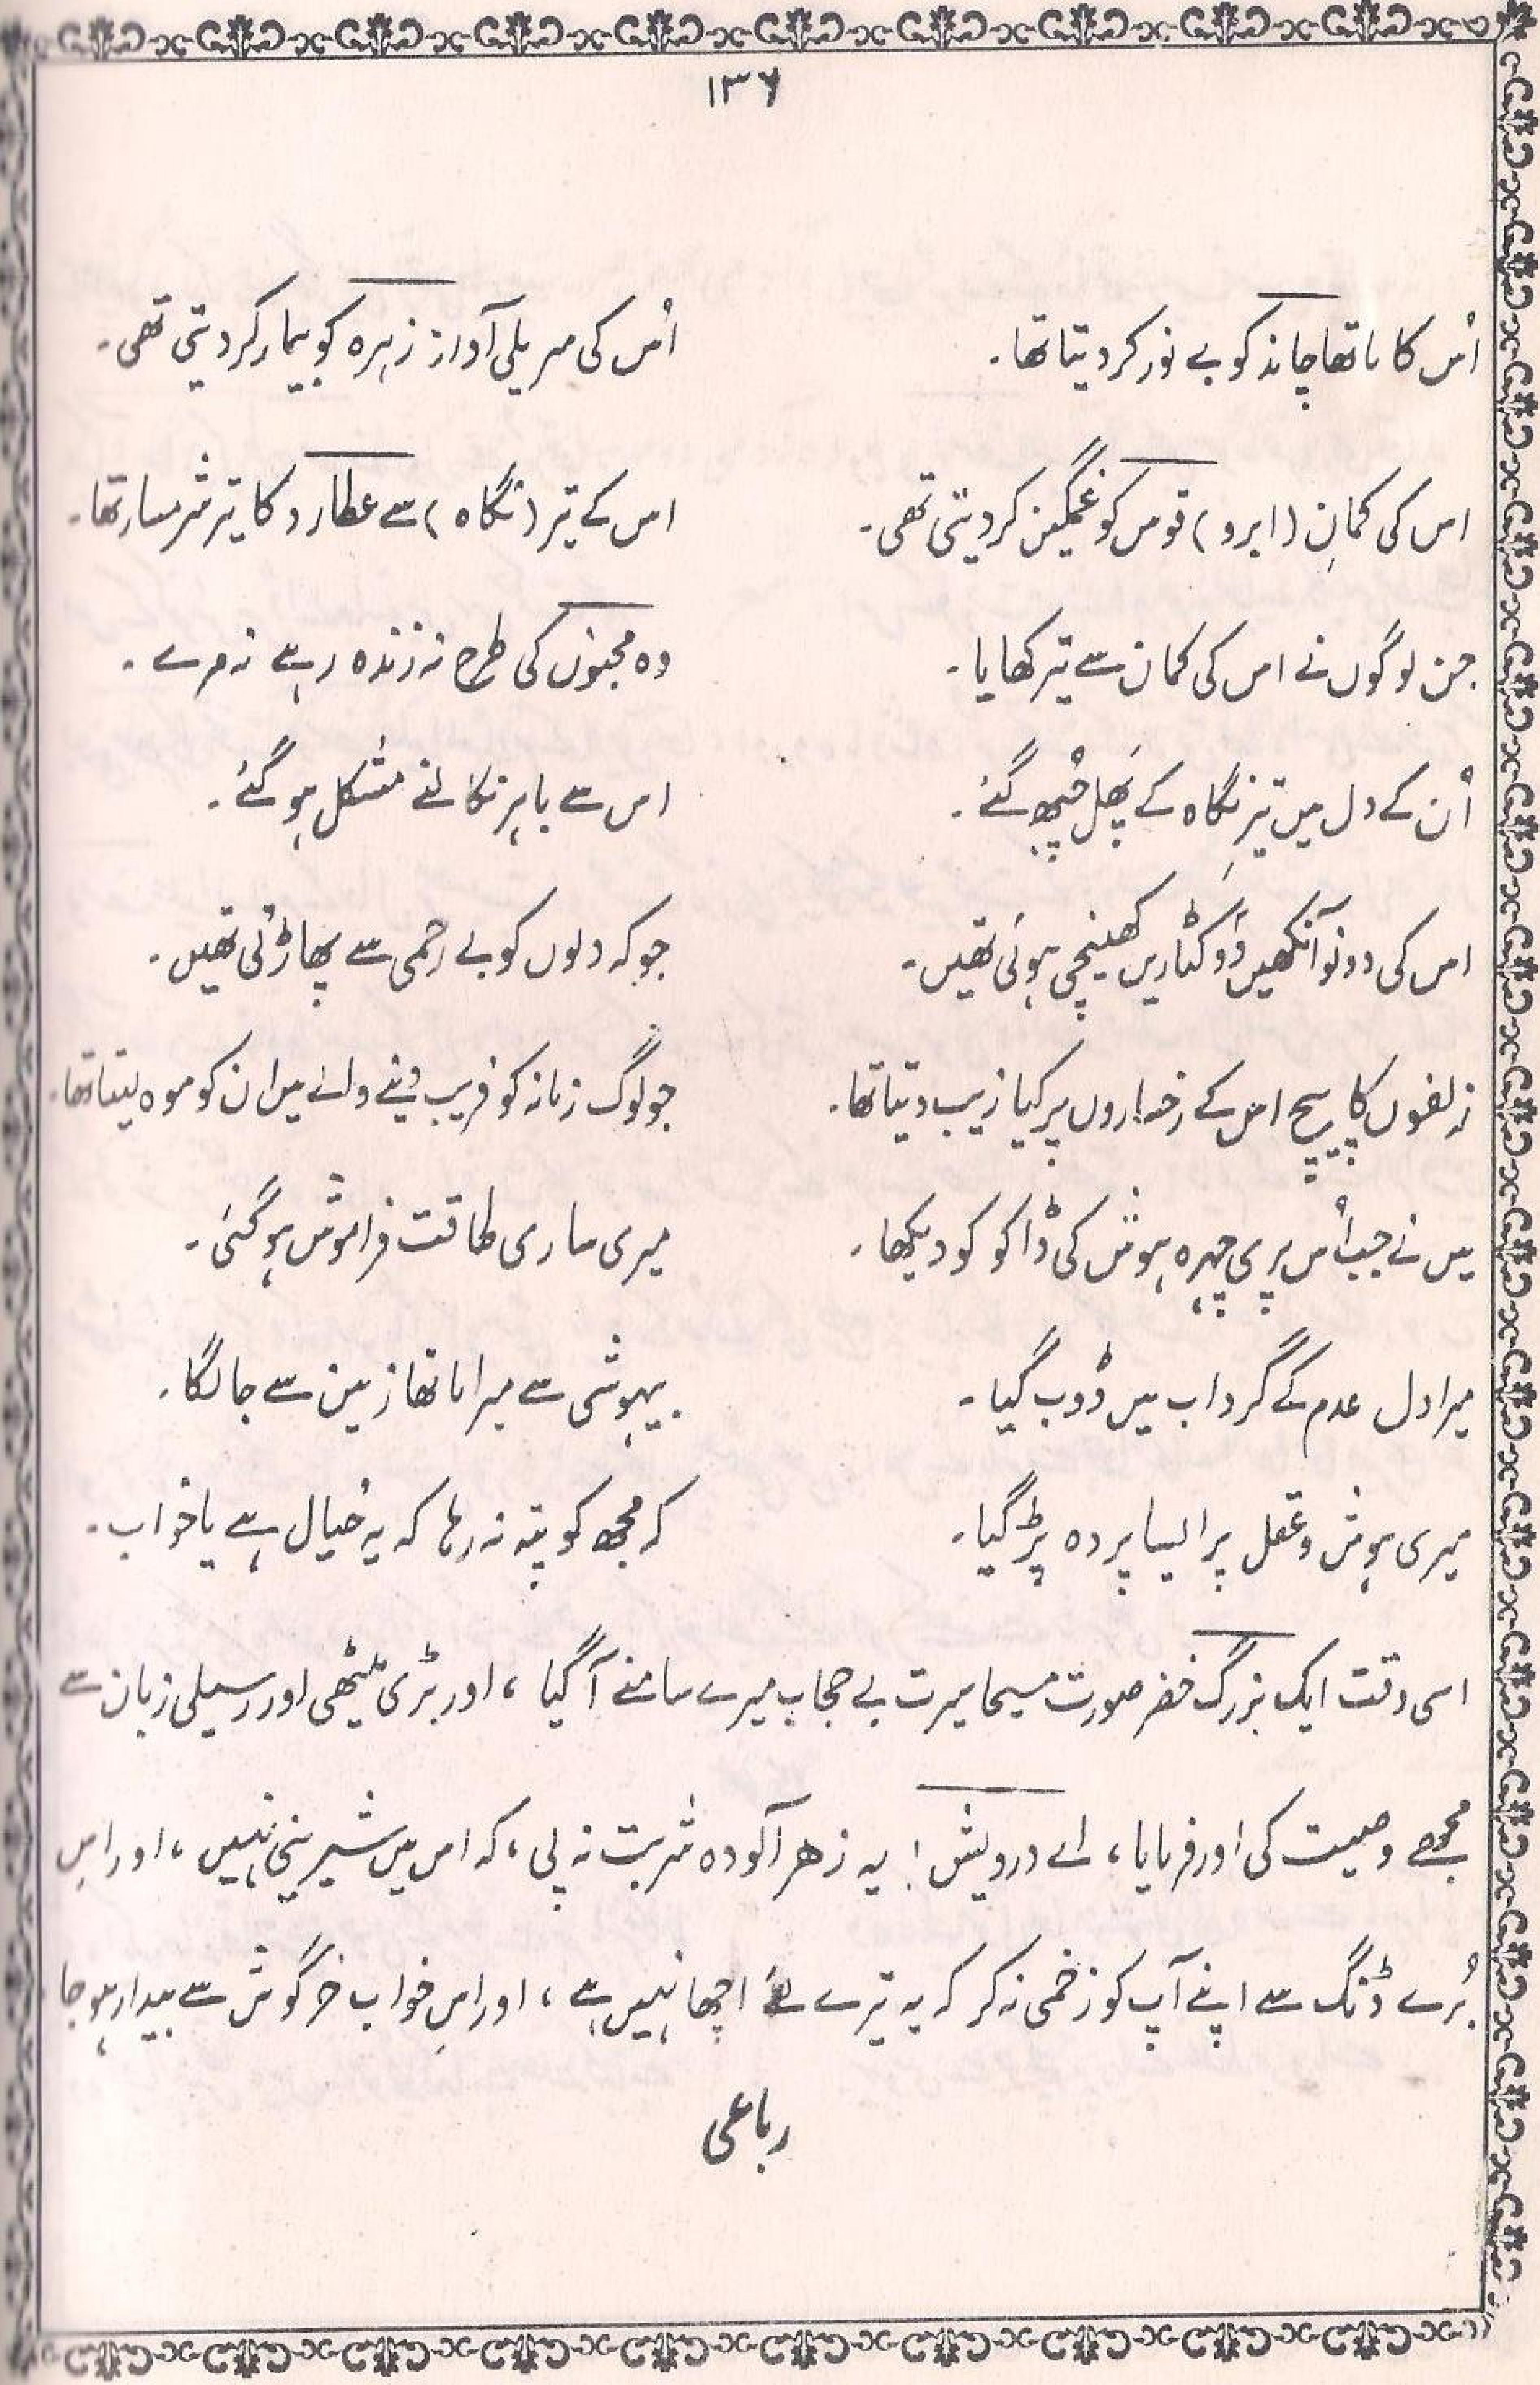 ۱۳۶
اُس کا ماتھا چاند کو بے نور کر دیتا تھا۔ اُس کی سریلی آواز زہرہ کو بیمار کر دیتی تھی۔
اس کی کمانِ (ابرو) قوس کو غمگین کر دیتی تھی۔ اس کے تیر (نگاہ) سے عطارد کا تیر شرمسار تھا۔
جن لوگوں نے اس کی کمان سے تیر کھایا۔ وہ مجنوں کی طرح نہ زندہ رہے نہ مرے۔
اُن کے دل میں تیرِ نگاہ کے پَھل چُبھ گئے۔ اس سے باہر نکالنے مشکل ہو گئے۔
اس کی دونو آنکھیں دَو کٹاریں کھینچی ہوئی تھیں۔ جو کہ دلوں کو بے رحمی سے پھاڑتی تھیں۔
زلفوں کا پیچ اس کے رخساروں پر کیا زیب دیتا تھا۔ جو لوگ زمانہ کو فریب دینے والے ہیں ان کو موہ لیتا تھا۔
میں نے جب اُس پری چہرہ ہوش کی ڈاکو کو دیکھا۔ میری ساری طاقت فراموش ہو گئی۔
میرا دل عدم کے گرداب میں ڈوب گیا۔ بیہوشی سے میرا ماتھا زمین سے جا لگا۔
میری ہوش و عقل پر ایسا پردہ پڑ گیا۔ کہ مجھ کو پتہ نہ رہا کہ یہ خیال ہے یا خواب۔
اسی وقت ایک بزرگ خضر صورت مسیحا سیرت بے حجاب میرے سامنے آ گیا، اور بڑی میٹھی اور رسیلی زبان سے
مجھے وصیت کی اور فرمایا، اے درویش! یہ زھر آلودہ شربت نہ پی، کہ اس میں شیرینی نہیں، اور اس
بُرے ڈنگ سے اپنے آپ کو زخمی نہ کر کہ یہ تیرے لئے اچھا نہیں ہے، اور اس خوابِ خرگوش سے بیدار ہو جا
رباعی